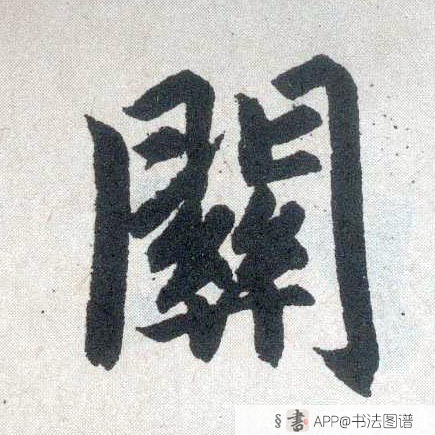 關
§書 APP@书法图谱